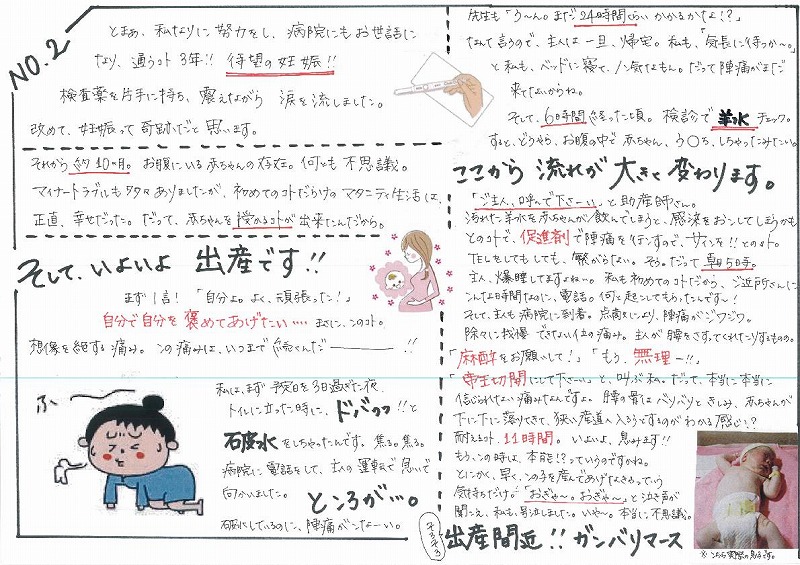 NO.2
とまぁ、私なりに努力をし、病院にもお世話に
なり、通うコト3年!! 待望の妊娠!!
検査薬を片手に持ち、震えながら 涙を流しました。
改めて、妊娠って奇跡だと思います。
それから約10ヶ月。お腹にいる赤ちゃんの存在。何とも不思議。
マイナートラブルも多々ありましたが、初めてのコトだらけのマタニティ生活は、
正直、幸せだった。だって、赤ちゃんを授かるコトが出来たんだから。
そして、いよいよ 出産です!!
まず1言!「自分よ。よく、頑張った!」
自分で自分を褒めてあげたい…. まさに、このコト。
想像を絶する痛み。この痛みは、いつまで続くんだ———!!
ふー
私は、まず予定日を3日過ぎた夜、
トイレに立った時に、ドバッッ!!と
破水をしちゃったんです。焦る。焦る。
病院に電話をして、主人の運転で急いで
向かいました。ところが…。
破水しているのに、陣痛がこなーい。
先生も「う〜ん。まだ24時間くらいかかるかなぁ!?」
なんて言うので、主人は一旦、帰宅。私も、「気長に待つか〜。」
と私も、ベッドに寝て、ノン気なもん。だって陣痛がまだ
来てないからね。
そして、6時間経った頃。検診で羊水チェック。
すると、どうやら、お腹の中で赤ちゃん、う○ち、しちゃったみたい。
ここから 流れが 大きく変わります。
「ご主人、呼んで下さーい」と助産師さん。
汚れた羊水を赤ちゃんが飲んでしまうと、感染をおこしてしまうかも
とのコトで、促進剤で陣痛を行すので、サインを!!とのコト。
TELをしてもしても、繋がらない。そう。だって朝5時。
主人、爆睡してますよねぃ。私も初めてのコトだから、ご近所さんに
こんな時間なのに、電話。何と起こしてもらったんです!
そして、主人も病院に到着。点滴により、陣痛がジワジワ。
除々に我慢 できない位の痛み。主人が腰をさすってくれたりするものの。
「麻酔をお願いして!」「もう、無理ー!!」
「帝王切開にして下さい」と、叫ぶ私。だって、本当に本当に
信じられない痛みなんですよ。腰の骨はバリバリときしみ、赤ちゃんが
下に下に落りてきて、狭い産道へ入ろうとするのがわかる感じ!?
耐えるコト、11時間。いよいよ、息みます!!
もう、この時は、本能!?っていうのですかね。
とにかく、早く、この子を産んであげなきゃっていう
気持ちだけ。「おぎゃ〜。おぎゃ〜」と泣き声が
聞こえ、私も、号泣しました。いや〜。本当に不思議。
そろそろ
出産間近!! ガンバリマース
※こちら実際の息子です。